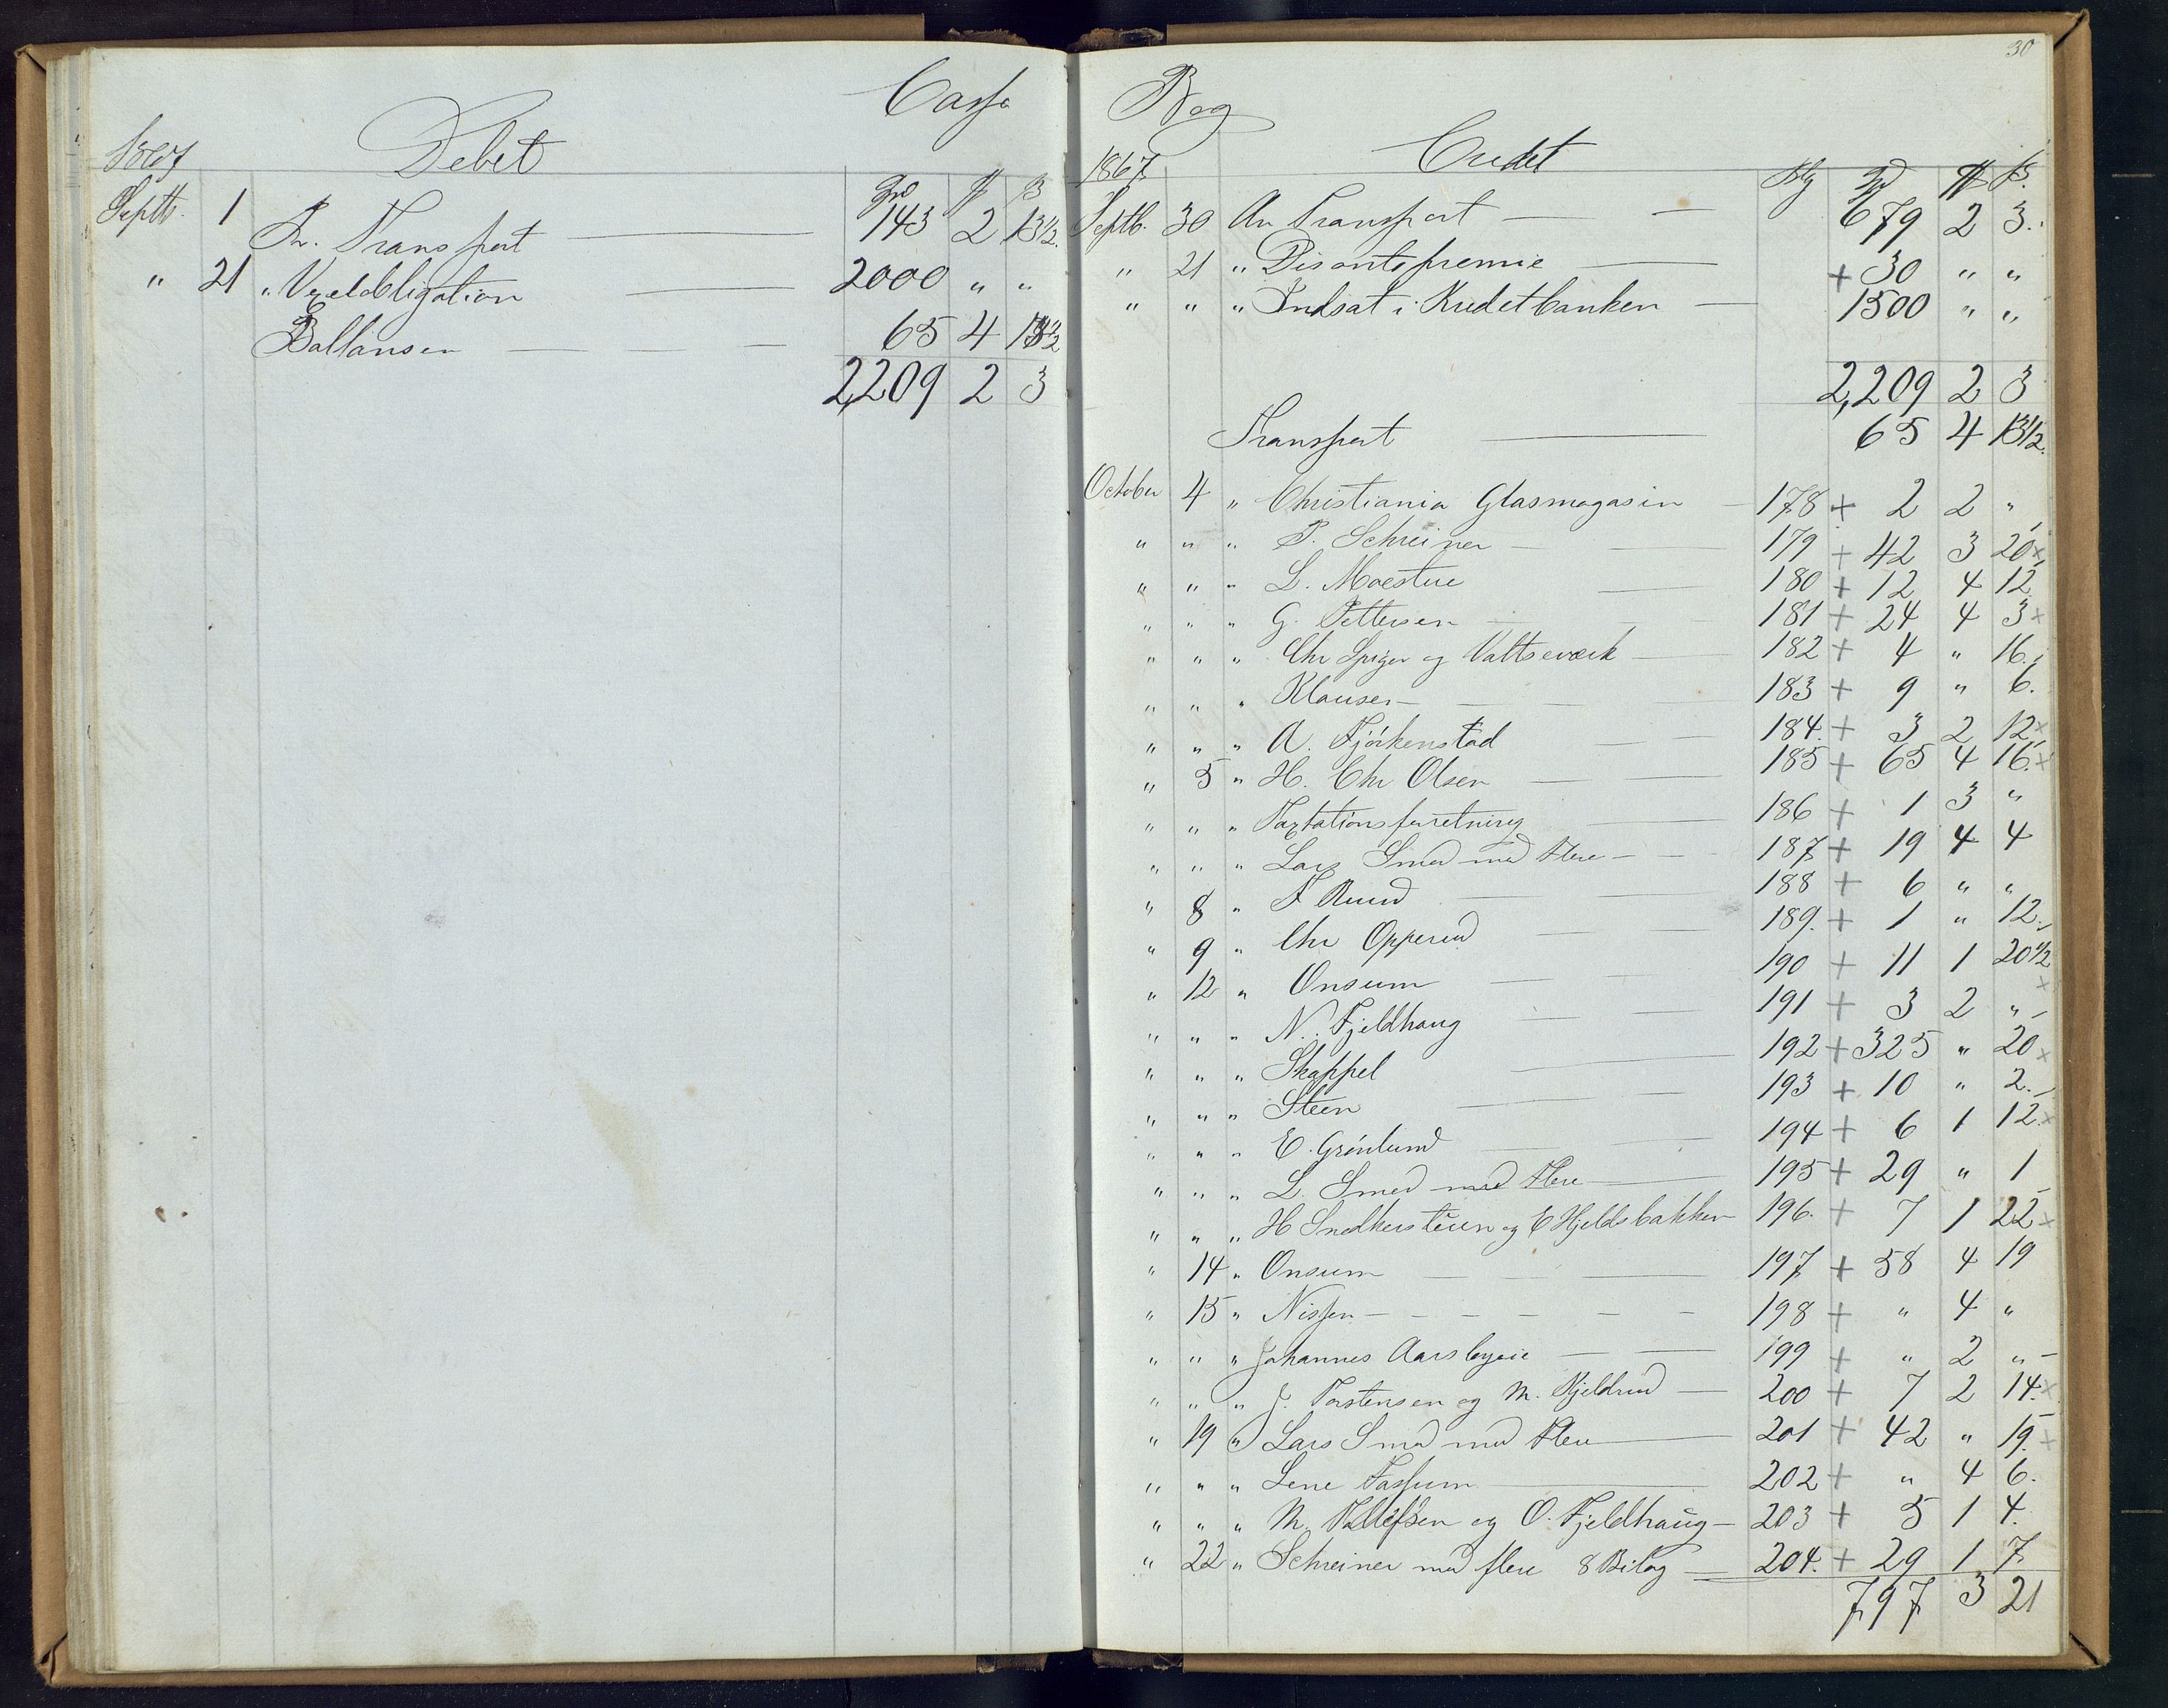 Cassa
Debet
1867
Spd ß
Septb. 1 Pr. Transport 143 2 13½
" 21 " Vexelobligation 2000 " "
Ballansen 65 4 13½
2209 2 3
30
Bog
Credet
1867
Blg Spd ß
Septb. 30 An Transport 679 2 3.
" 21 " Discontopremie + 30 " "
" " " Indsat i Kredetbanken 1500 " "
2,209 2 3
Transport 65 4 13½
October 4 " Christiania Glasmagasin 178 + 2 2 "
" " " P. Schreiner 179 + 42 3 20 x
" " " L. Moestue 180 + 12 4 12
" " " G. Pettersen 181 + 24 4 3 x
" " " Chr Spiger og Valtseværk 182 + 4 " 16.
" " " Klausen 183 + 9 " 6.
" " " A. Fjörkenstad 184. + 3 2 12 x
" 5 " H. Chr Olsen 185 + 65 4 16. x
" " " Taxtationsforretning 186 + 1 3 "
" " " Lars Smed med Flere 187 + 19 4 4
" 8 " F Ruud 188 + 6 " "
" 9 " Chr Opperud 189. + 1 " 12.
" 12 " Onsum 190 + 11 1 20½ x
" " " N. Fjeldhaug 191 + 3 2 "
" " " Skappel 192 + 325 " 20 x
" " " Steen 193 + 10 " 2.
" " " E. Grönlund 194 + 6 1 12. x
" " " L. Smed med Flere 195 + 29 " 1
" " " H Snedkersteuen og E Hjeldsbakken 196. + 7 1 22 x
" 14 " Onsum 197 + 58 4 19
" 15 " Nissen 198 + " 4 "
" " " Johannes Aarsbyeie 199 + " 2 "
" " " J. Torstensen og M. Kjeldrud 200 + 7 2 14. x
" 19 " Lars Smed med Flere 201 + 42 " 19. +
" " " Lene Fossum 202 + " 4 6.
" " " M. Tollefsen og O. Fjeldhaug 203 + 5 1 4.
" 22 " Schreiner med flere 8 Bilag 204. + 29 1 7
797 3 21